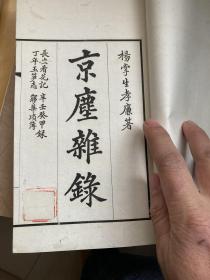 楊掌生孝廉著
京塵雜錄
長安看花記 辛壬癸甲錄
丁年玉筍志 夢華瑣簿